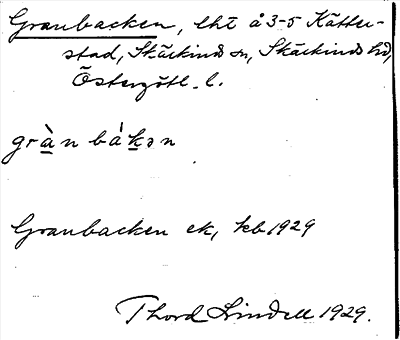 Granbacken, lht å 3-5 Kätter-
stad, Skärkinds sn, Skärkinds hd,
Östergötl. l.
gràn bákən
Granbacken ek, kb 1929
Thord Lindell 1929.